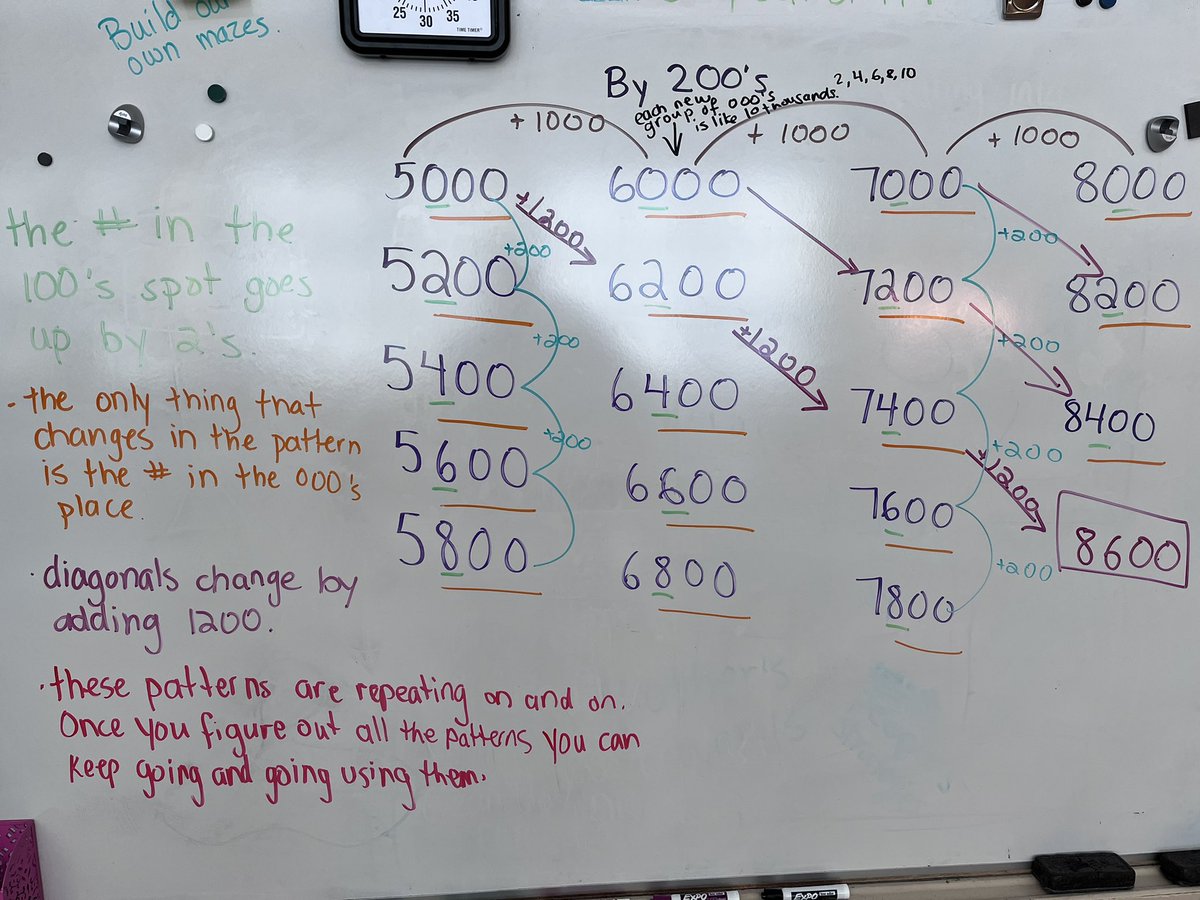 Build our
own mazes.
25 30 35
TIME TIMER
By 200's
each new 2, 4, 6, 8, 10
group of 000's
is like 10 thousands.
+ 1000 + 1000 + 1000
5000 6000 7000 8000
+1200
+200 +200
5200 6200 7200 8200
+200 +1200 +200
5400 6400 7400 8400
+200 +200
+1200
5600 6600 7600 8600
+200
5800 6800 7800
the # in the
100's spot goes
up by 2's.
- the only thing that
changes in the pattern
is the # in the 000's
place.
· diagonals change by
adding 1200.
· these patterns are repeating on and on.
Once you figure out all the patterns you can
keep going and going using them.
EXPO EXPO